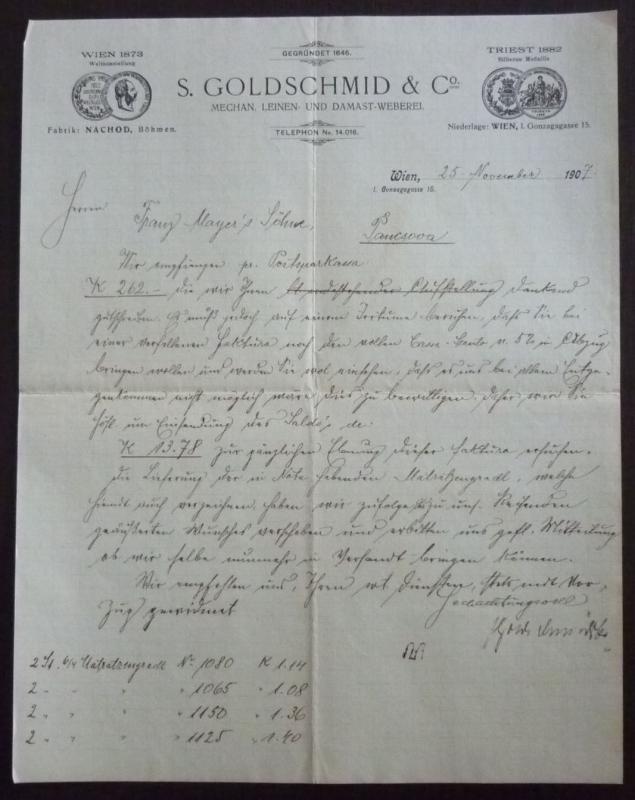 WIEN 1873
Weltausstellung
GEGRÜNDET 1846.
TRIEST 1882
Silberne Medaille
S. GOLDSCHMID & Co.
MECHAN. LEINEN- UND DAMAST-WEBEREI.
Fabrik: NACHOD, Böhmen.
TELEPHON No. 14.016.
Niederlage: WIEN, I. Gonzagagasse 15.
Wien, 25. November 1907.
I. Gonzagagasse 15.
Herren Franz Mayer's Söhne,
Pancsova
Wir empfingen pr. Postsparkassa
K 262.- die wir Ihnen lt. Aufstellung dankend
gutschreiben. Es muß jedoch auf einem Irrtume beruhen, daß Sie bei
einer verfallenen Faktura noch den vollen Cassa-Conto v. 5% in Abzug
bringen wollen und werden Sie wol einsehen, daß es uns bei allem Entge-
genkommen nicht möglich wäre dies zu bewilligen, daher wir Sie
höfl. um Einsendung des Saldo's de
K 13.78 zur gänzlichen Ebnung dieser Faktura ersuchen.
Die Lieferung der in Nota habenden Matratzengradl, welche
auch verzeichnen, haben wir zufolge uns. Reisenden
geäußerten Wunsches verschoben und erbitten uns gefl. Mitteilung
ob wir selbe nunmehr in Versandt bringen können.
Wir empfehlen uns, Ihren wt. Diensten, stets mit Vor-
zug gewidmet
Hochachtungsvoll
2 St. 6/4 Matratzengradl No. 1080 K 1.14
2 " " " " 1065 " 1.08
2 " " " " 1150 " 1.36
2 " " " " 1125 " 1.40